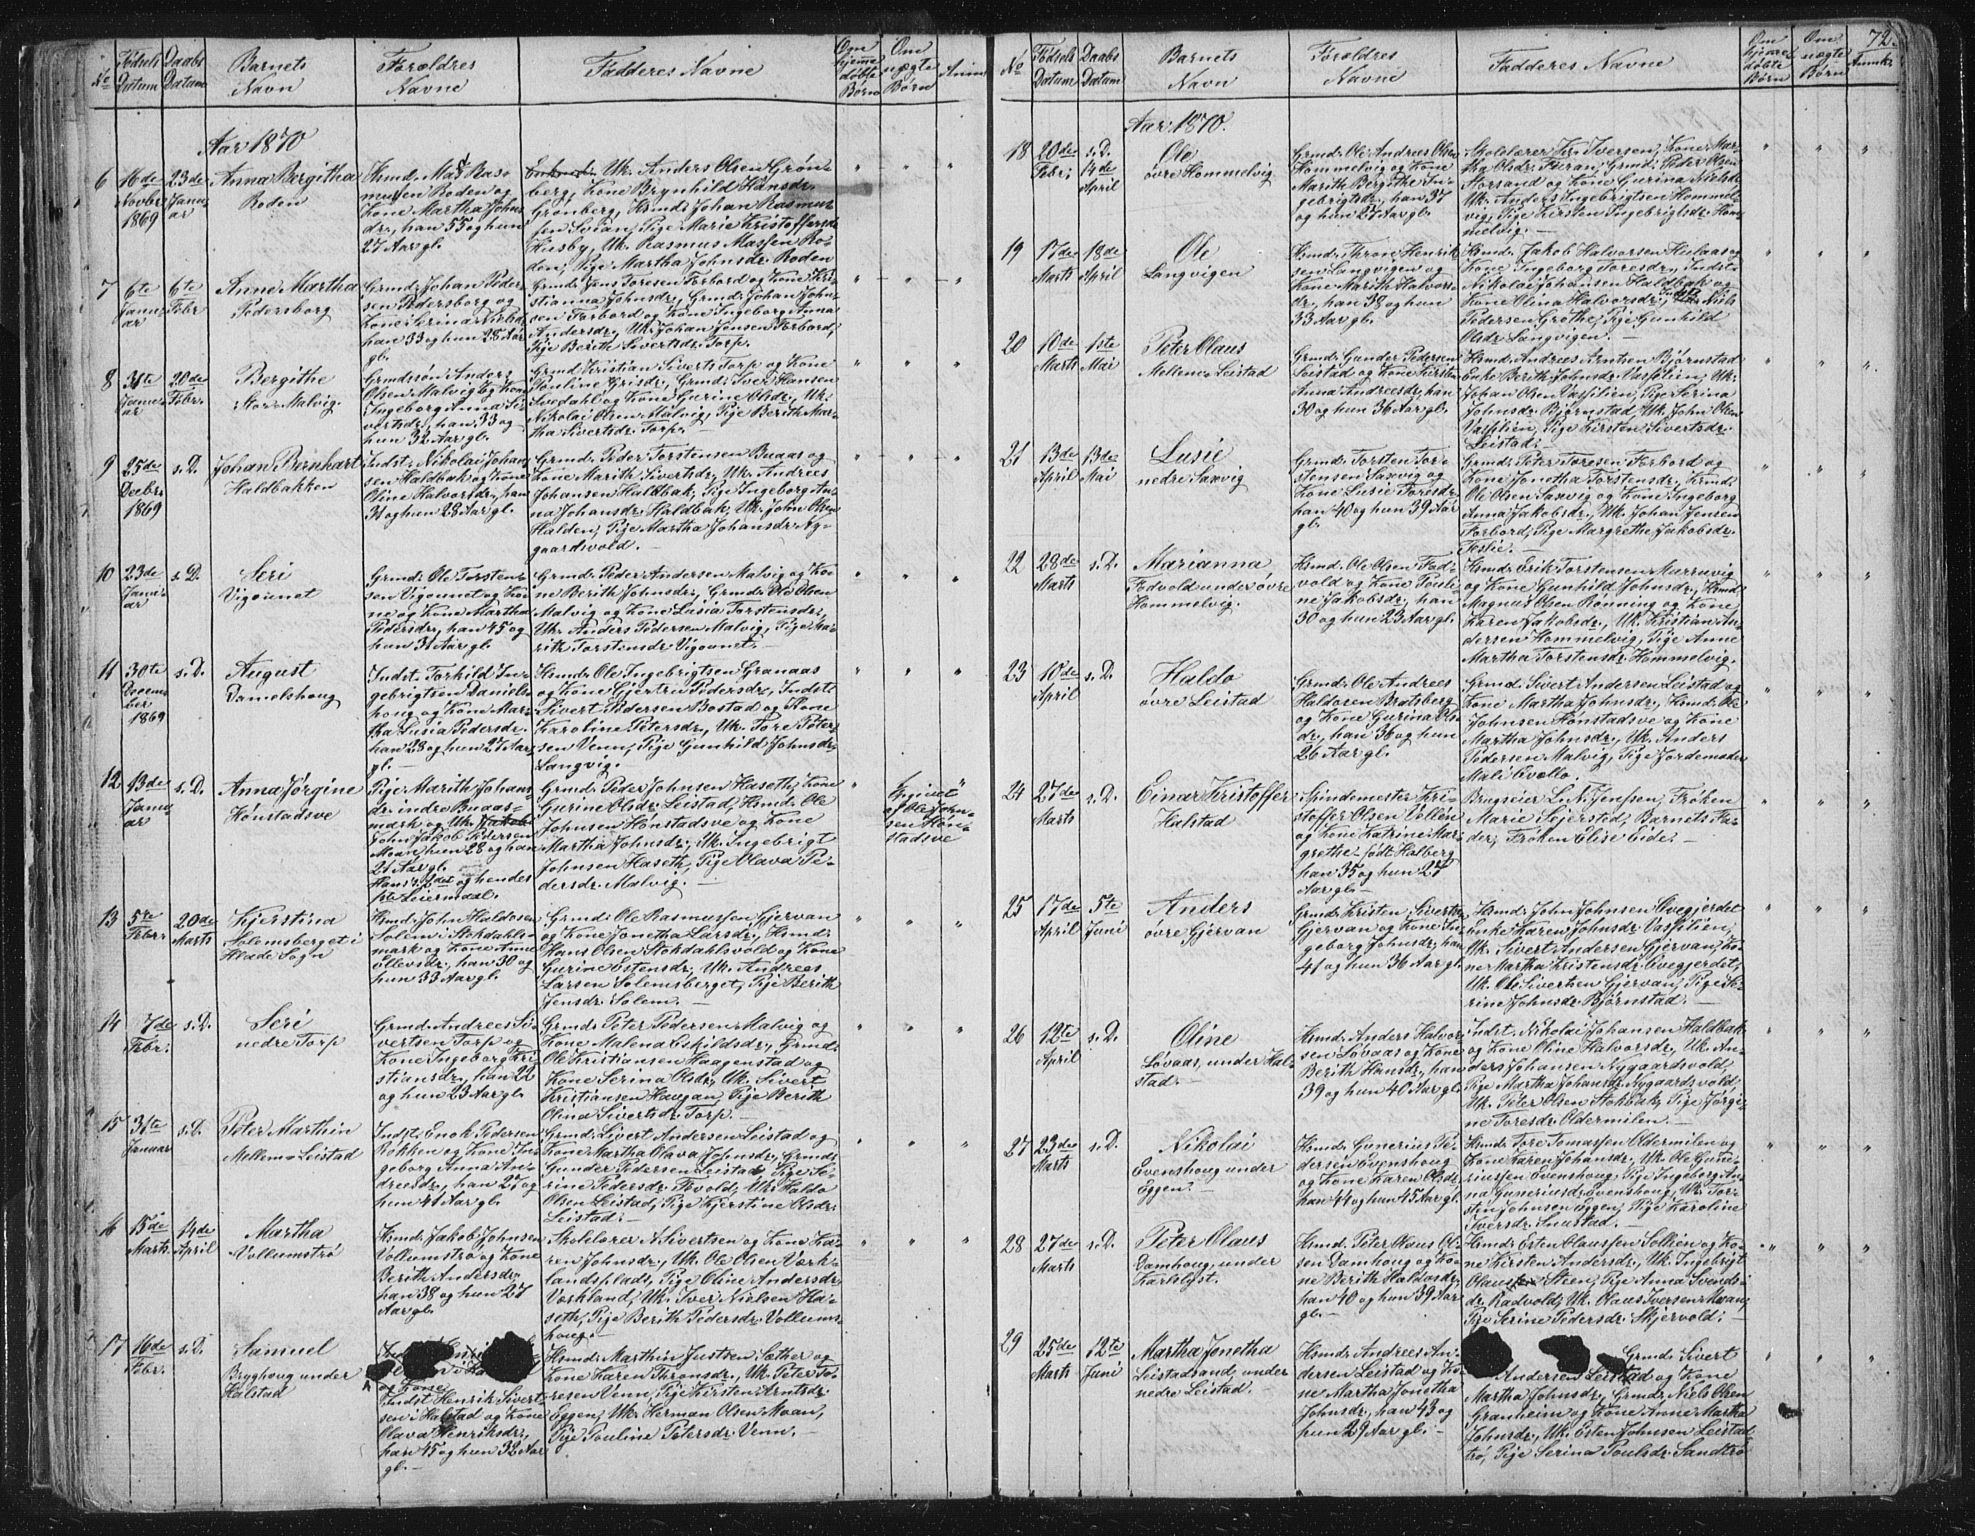 72.
No
Fødsels
Datum
Daabs
Datum
Barnets
Navn
Forældres
Navne
Fadderes Navne
Om
hjemme
døbte
Børn
Om
uægte
Børn
Anm
Aar 1870
6
16de
Novbr
1869
23de
Janu-
ar
Anna Bergitha
Roden
Hsmd. Mads Ras-
mussen Roden og
Kone Martha Johns-
dr., han 55 og hun
27 Aar gl.
Uk. Anders Olsen Grøn-
berg, Kone Brynhild Hansdr.
Grønberg, Hsmd: Johan Rasmus-
sen Solan, Pige Marie Kristoffersdr
Husby, Uk. Rasmus Massen Ro-
den, Pige Martha Johnsdr. Roden
7
6te
Janu-
ar
6te
Febr
Anne Martha
Pedersborg
Grmd: Johan Peder-
sen Pedersborg og
Kone Serina Nielsdr.
han 33 og hun 28 Aar
gl.
Grmd: Jens Toresen Forbord og Kone Kri-
stianna Johnsdr., Grmd: Johan John-
sen Forbord og Kone Ingeborg Anna
Andersdr., Uk. Johan Jensen Forbord,
Pige Berith Sivertsdr. Torp.
8
31te
Janu-
ar
20de
Febr.
Bergithe
Stor-Malvig.
Grmdssøn Anders
Olsen Malvig og Kone
Ingeborg Anna Si-
vertsdr., han 33 og
hun 32 Aar gl.
Grmd Kristian Siverts Torp og Kone
Pauline Grisdr., Grmd: Iver Hansen
Svedahl og Kone Gurine Olsdr., Uk.
Nikolai Olsen Malvig, Pige Berith Mar-
tha Sivertsdr. Torp.
9
25de
Decbr.
1869
s. D.
Johan Bernhart
Haldbakken
Indst. Nikolai Johan-
sen Haldbak og Kone
Oline Halvorsdr., han
31 og hun 28 Aar gl.
Grmd: Peder Torstensen Buaas og
Kone Marith Sivertsdr., Uk. Andrees
Johansen Haldbak, Pige Ingeborg An-
na Johansdr. Haldbak, Uk. John Olsen
Halden, Pige Martha Johansdr. Ny-
gaardsvold.
10
23de
Janu-
ar
s. D.
Seri
Vigounet
Grmd: Ole Torsten-
sen Vigounet og Ko-
ne og Kone Martha
Pedersdr., han 45 og
hun 31 Aar gl.
Grmd: Peder Andersen Malvig og Ko-
ne Berith Johnsdr., Grmd: Ole Olsen
Malvig og Kone Lusia Torstensdr.,
Uk. Anders Pedersen Malvig, Pige Ma-
rith Torstensdr. Vigounet.
11
30te
Decem-
ber
1869
s. D.
August
Danielshoug
Indst. Torkild In-
gebrigtsen Daniels-
houg og Kone Mar-
tha Lusia Pedersdr.
han 28 og hun 27 Aar
gl.
Hsmd: Ole Ingebrigtsen Granaas
og Kone Gjertru Pedersdr., Indst:
Sivert Pedersen Bostad og Kone
Karoline Petersdr., Uk. Tore Peter-
sen Venn, Pige Gunhild Johnsdr.
Langvig.
12
13de
Janu-
ar
s. D.
Anna Jørgine
Hønstadsve
Pige Marith Johans-
dr. indre Buaas-
mark og Uk.
John Jakob Pedersen
Moan, hun 28 og han
21 Aar gl.
Hans 1. det og hendes
Leiermaal.
Grmd: Peder Johnsen Haseth, Kone
Gurine Olsdr. Leistad, Hsmd: Ole
Johnsen Hønstadsve og Kone
Martha Johnsdr., Uk. Ingebrigt
Johnsen Haseth, Pige Olava Pe-
dersdr. Malvig.
Opgivet
af Ole John-
sen Høn-
stadsve
13
5te
Febr.
20de
Marts
Kjerstina
Solemsberget i
Hlade Sogn
Hsmd: John Haldosen
Solem i Stokdahls-
mark og Kone Anne
Ellevsdr., han 30 og
hun 33 Aar gl.
Grmd: Ole Rasmussen Gjervan
og Kone Jonetha Larsdr., Hsmd:
Hans Olsen Stokdahlsvold og Kone
Gurine Estensdr., Uk. Andrees
Larsen Solemsberget, Pige Berith
Jensdr. Solem.
14
7de
Febr:
s. D.
Seri
nedre Torp
Grmd: Andrees Si-
vertsen Torp og
Kone Ingeborg Kri-
stiansdr., han 22
og hun 23 Aar gl.
Grmd: Peter Pedersen Malvig og
Kone Malena Eskildsdr., Grmd:
Ole Kristiansen Haagenstad og
Kone Serina Olsdr., Uk. Sivert
Kristiansen Haugan, Pige Berith
Olina Sivertsdr. Torp.
15
31te
Januar
s. D.
Peter Marthin
Mellem-Leistad
Indst. Enok Pedersen
Kokken og Kone In-
geborg Anna An-
dreesdr., han 27 og
hun 41 Aar gl.
Grmd: Sivert Andersen Leistad og
Kone Martha Olava Johnsdr., Grmd:
Gunder Pedersen Leistad, Pige Se-
rine Pedersdr. Flovold, Uk. Haldo
Olsen Leistad, Pige Kjerstine Olsdr.
Leistad.
16
15de
Marts
14de
April
Martha
Vollumstrø
Hsmd: Jakob Johnsen
Vollumstrø og Kone
Berith Andersdr.,
han 38 og hun 27
Aar gl.
Skolelærer A. Sivertsen og Kone Ka-
ren Johnsdr., Uk. Ole Olsen Værk-
landsplads, Pige Oline Andersdr.
Værkland, Uk. Iver Nielsen Ha-
seth, Pige Berith Pedersdr. Vollums-
houg.
17
16de
Febr.
s. D.
Samuel
Bryghoug under
Halstad
og Kone
Indst Henrik Sivert-
sen i Halstad og Kone
Olava Henriksdr.,
han 45 og hun 32 Aar
gl.
Hsmd: Marthin Justsen Sæther og
Kone Karen Thronsdr., Uk. Peter To-
resen Venn, Pige Kirsten Arntsdr.
Eggen, Uk. Herman Olsen Moan,
Pige Pauline Petersdr. Venn.
No
Fødsels
Datum
Daabs
Datum
Barnets
Navn
Forældres
Navne
Fadderes Navne
Om
hjemme
døbte
Børn
Om
uægte
Børn
Anmkr
Aar 1870.
18
20de
Febr:
s. D.
14de
April
Ole
øvre Hommelvig
Grmd: Ole Andreas Olsen
Hommelvig og Kone
Marith Bergithe In-
gebrigtsdr., han 37
og hun 27 Aar gl.
Skolelærer Kr. Iversen, Kone Mar-
tha Olsdr. Furan, Grmd: Peder Olsen
Storsand og Kone Gurina Nielsdr.
Uk. Anders Ingebrigtsen Hommel-
vig, Pige Kirsten Ingebrigtsdr. Hom-
melvig.
19
17de
Marts
18de
April
Ole
Langvigen
Hsmd: Throne Henrik-
sen Langvigen og
Kone Marith Halvors-
dr., han 38 og hun
33 Aar gl.
Hsmd: Jakob Halvorsen Hulaas og
Kone Ingeborg Toresdr., Indst:
Nikolai Johansen Haldbak og
Kone Olina Halvorsdr., Niels
Pedersen Grøthe, Pige Gunhild
Olsdr. Langvigen.
20
10de
Marts
1ste
Mai
Peter Olaus
Mellem-Leistad
Grmd: Gunder Pedersen
Leistad og Kone Kirsten
Anna Andreesdr., han
30 og hun 36 Aar gl.
Hsmd: Andrees Arntsen Bjørnstad,
Enke Berith Johnsdr. Vasplien, Uk.
Johan Olsen Vasplien, Pige Serina
Johnsdr. Bjørnstad, Uk. John Olsen
Vasplien, Pige Kirsten Sivertsdr.
Leistad.
21
13de
April
13de
Mai
Lusie
nedre Saxvig
Grmd: Torsten Tor-
stensen Saxvig og
Kone Lusie Toresdr.
han 40 og hun 39 Aar
gl.
Grmd: Peter Toresen Forbord og
Kone Jonetha Torstensdr., Grmd:
Ole Olsen Saxvig og Kone Ingeborg
Anna Jakobsdr., Uk. Johan Jensen
Forbord, Pige Margrethe Jakobsdr.
Teslie.
22
28de
Marts
s. D.
Marianna
Fodvold under øvre
Hommelvig.
Hsmd: Ole Olsen Fod-
vold og Kone Pauli-
ne Jakobsdr., han
30 og hun 23 Aar gl.
Hsmd: Erik Torstensen Marnvig
og Kone Gunhild Johnsdr., Hsmd:
Magnus Olsen Rønning og Kone
Karen Jakobsdr., Uk. Kristian An-
dersen Hommelvig, Pige Anne
Martha Torstensdr. Hommelvig.
23
10de
April
s. D.
Haldo
øvre Leistad
Grmd: Ole Andreas
Haldosen Bratsberg
og Kone Gurina Ols-
dr., han 36 og hun
26 Aar gl.
Grmd: Sivert Andersen Leistad og
Kone Martha Johnsdr., Hsmd: Ole
Johnsen Hønstadsve og Kone
Martha Johnsdr., Uk. Anders
Pedersen Malvig, Pige Jordemoder
Mali Kvello.
24
27de
Marts
s. D.
Einar Kristoffer
Halstad
Spindemester Kri-
stoffer Olsen Velleen
og Kone Katrine Mar-
grethe født Halberg
han 35 og hun 27
Aar gl.
Brugseier L. N. Jenssen, Frøken
Marie Sejersted, Barnets Fa-
der, Frøken Elise Eide.
25
17de
April
5te
Juni
Anders
øvre Gjervan
Grmd: Kristen Siverts.
Gjervan og Kone In-
geborg Johnsdr., han
41 og hun 36 Aar gl.
Hsmd: John Johnsen Ovegjerdet,
Enke Karen Johnsdr. Vasplien,
Uk. Sivert Andersen Gjervan, Ko-
ne Martha Kristensdr. Ovegjerdet,
Uk. Ole Sivertsen Gjervan, Pige Se-
rine Johnsdr. Bjørnstad.
26
12te
April
s. D.
Oline
Løvaas, under Hal-
stad.
Hsmd: Anders Halvor-
sen Løvaas og Kone
Berith Hansdr., han
39 og hun 40 Aar gl.
Indst. Nikolai Johansen Haldbak
og Kone Oline Halvorsdr., Uk. An-
ders Johansen Nygaardsvold,
Pige Martha Johansdr. Nygaardsvold,
Uk. Peter Olsen Stokbak, Pige Jørgi-
ne Toresdr. Oldermilen.
27
23de
Marts
s. D.
Nikolai
Evenshoug under
Eggen.
Hsmd: Gunerius Pe-
dersen Evenshoug
og Kone Karen Olsdr.
han 44 og hun 45 Aar gl.
Hsmd: Tore Tomassen Oldermilen og
Kone Karen Johansdr., Uk. Ole Gune-
riussen Evenshoug, Pige Ingeborg An-
na Guneriusdr. Evenshoug, Uk. Tor-
sten Johnsen Eggen, Pige Karoline
Iversdr. Snustad.
28
27de
Marts
s. D.
Peter Olaus
Damhoug, under
Karlslyst.
Hsmd: Peter Olaus Ol-
sen Damhoug og Ko-
ne Berith Haldosdr.,
han 40 og hun 39 Aar
gl.
Hsmd: Esten Olaussen Sollien og Ko-
ne Kirsten Andersdr., Uk. Ingebrigt
Olaus Steen, Pige Anna Svends-
dr. Rødvold, Uk. Olaus Iversen Moan,
Pige Serine Pedersdr. Skjervold.
29
25de
Marts
12te
Juni
Martha Jonetha
Leistadsand, under
nedre Leistad.
Hsmd: Andrees An-
dersen Leistad og Ko-
ne Martha Jonetha
Johnsdr., han 43 og
hun 29 Aar gl.
Grmd: Sivert
Andersen Leistad og Kone
Martha Johnsdr., Grmd: Niels Olsen
Granheim og Kone Anne Martha
Johnsdr., Uk. Esten Johnsen Leistad-
trø, Pige Serina Poulsdr. Sandtrø